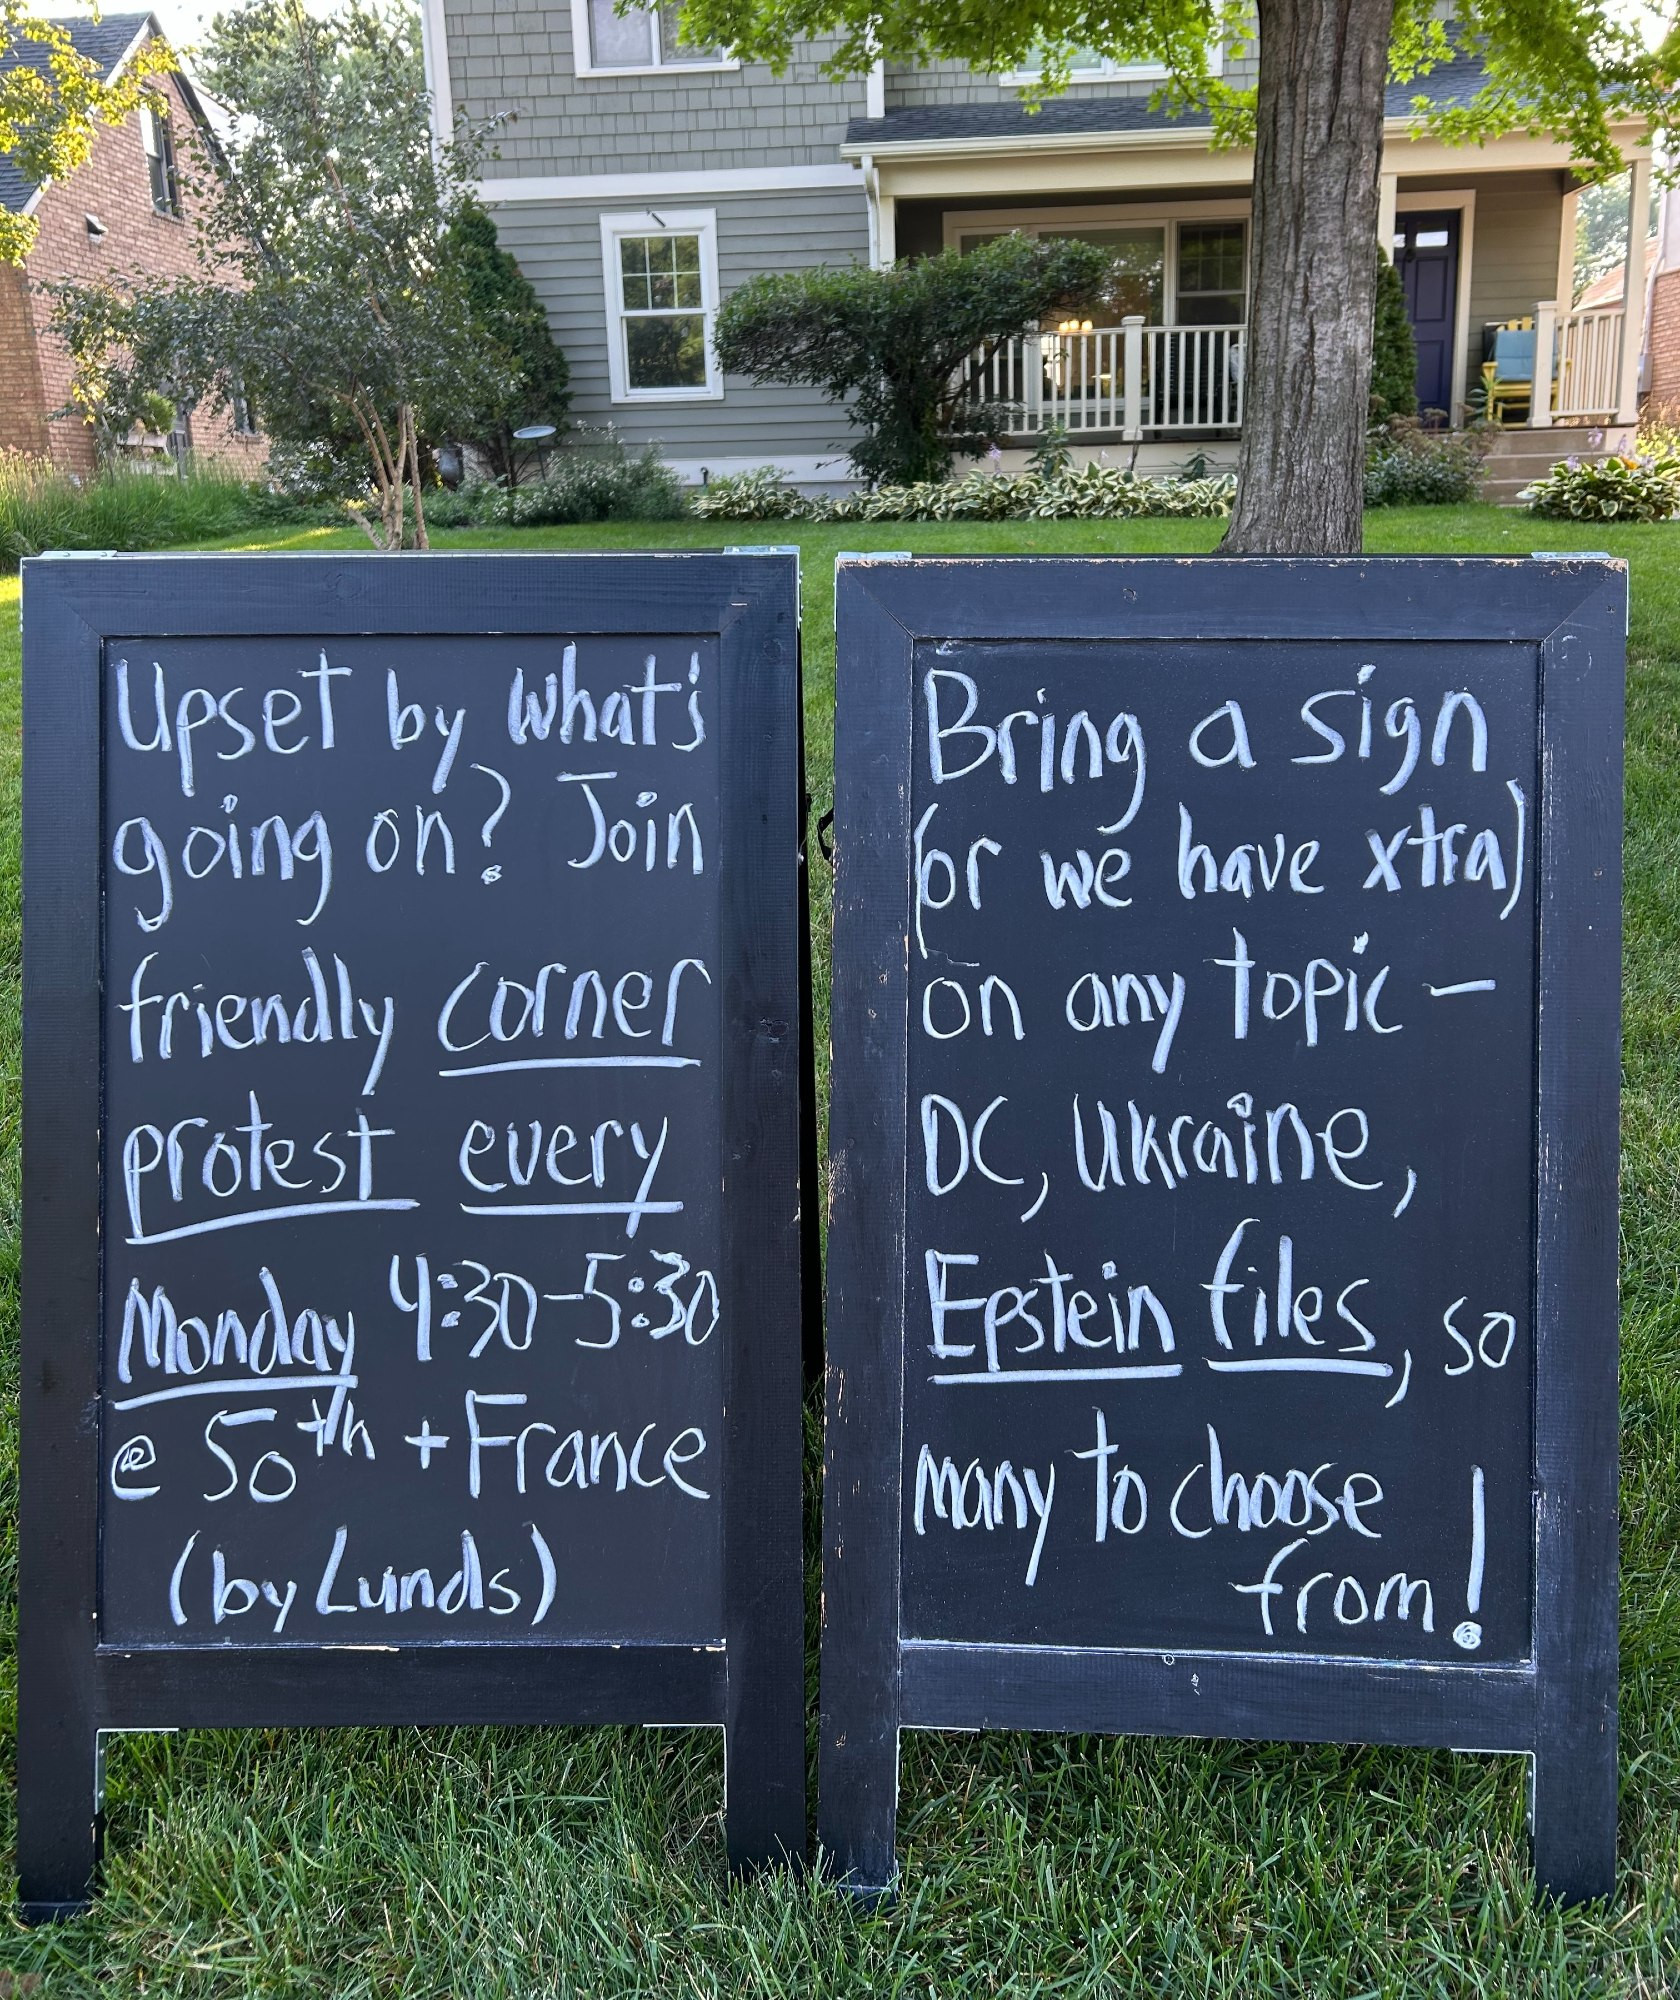 Upset by what's
going on? Join
friendly corner
protest every
Monday 4:30-5:30
@ 50th + France
(by Lunds)
Bring a sign
(or we have xtra)
on any topic -
DC, Ukraine,
Epstein files, so
many to choose
from!